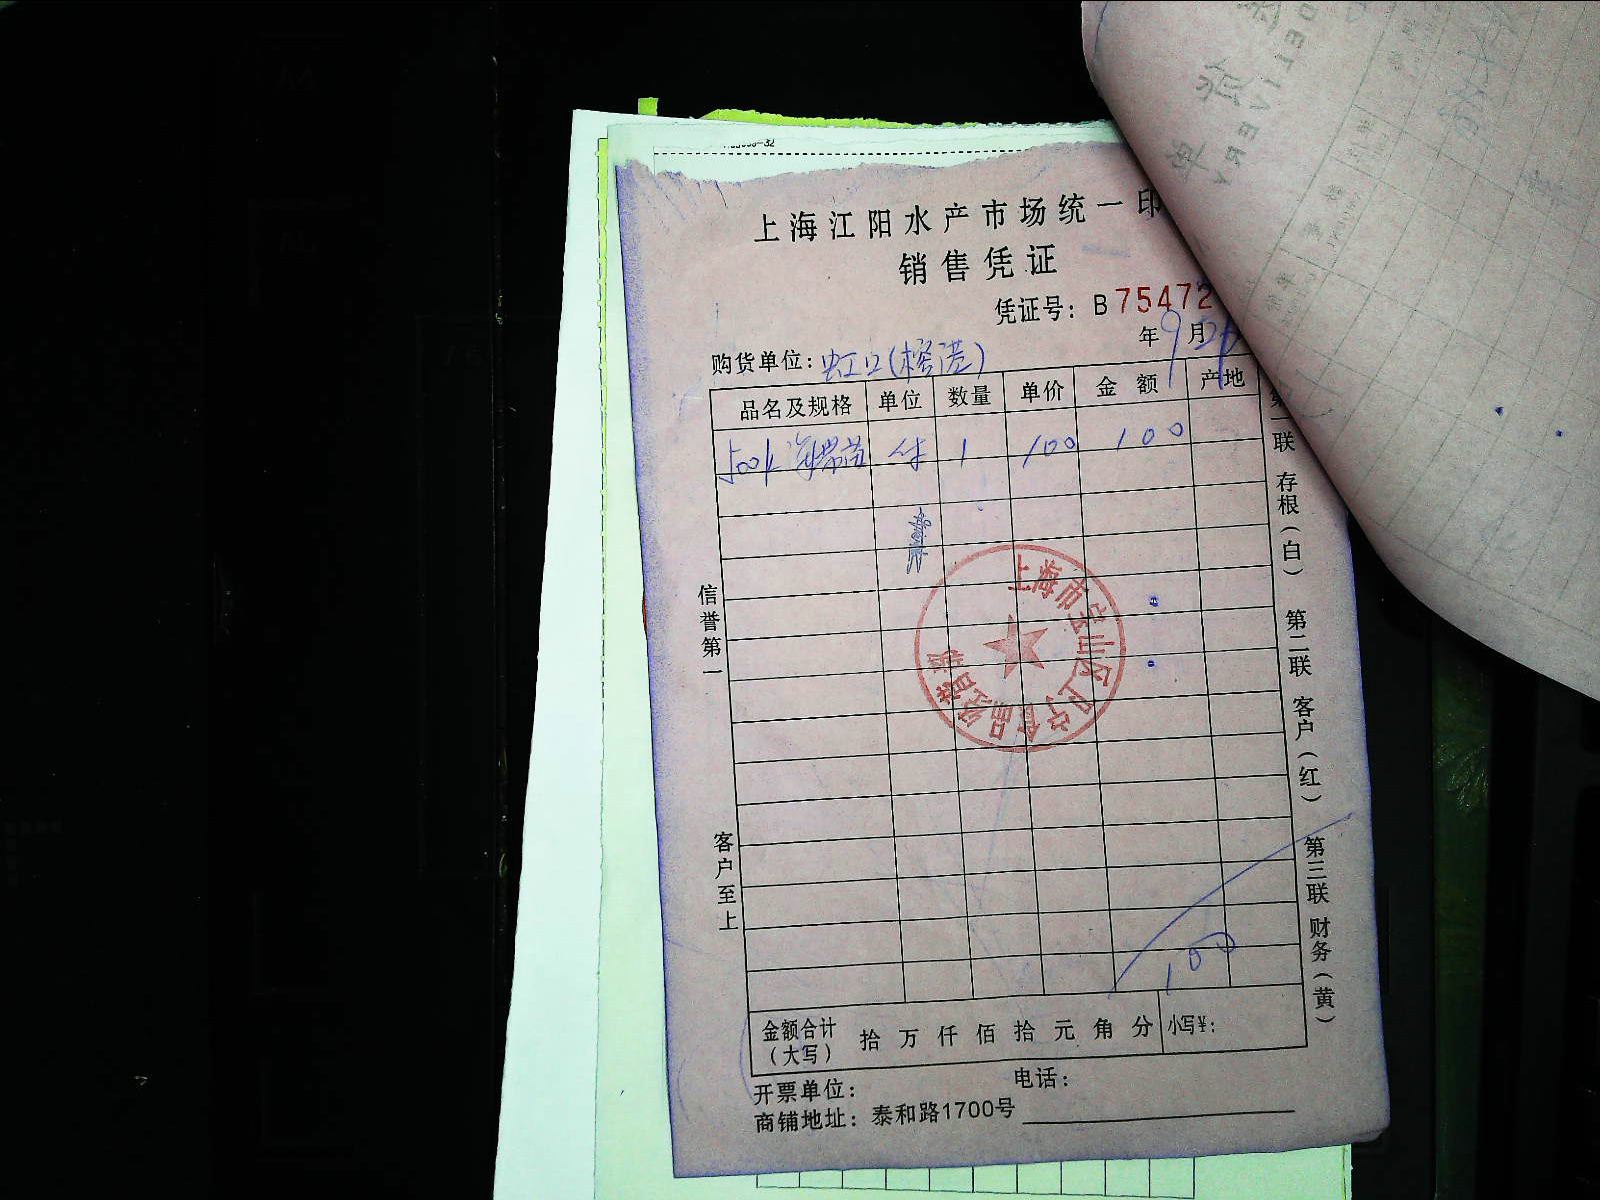 上海江阳水产市场统一印
销售凭证
凭证号：B 75472
年 9月26
购货单位：虹口（
品名及规格 单位 数量 单价 金额 产地
海带苗 件 1 100 100
上海市宝山区
食品经营部
100
金额合计（大写） 拾 万 仟 佰 拾 元 角 分 小写¥：
开票单位： 电话：
商铺地址：泰和路1700号
信誉第一 客户至上
联 存根（白） 第二联 客户（红） 第三联 财务（黄）